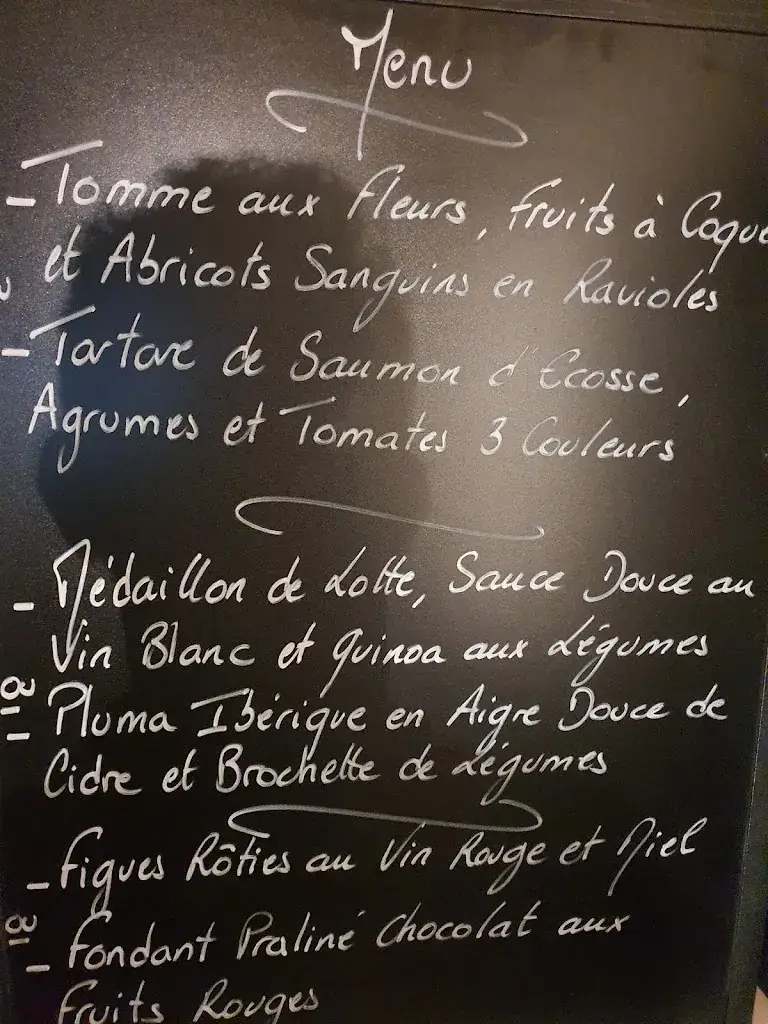 Menu
- Tomme aux Fleurs, Fruits à Coque
et Abricots Sanguins en Ravioles
- Tartare de Saumon d'Ecosse,
Agrumes et Tomates 3 Couleurs
- Médaillon de Lotte, Sauce Douce au
Vin Blanc et Quinoa aux Légumes
- Pluma Ibérique en Aigre Douce de
Cidre et Brochette de Légumes
- Figues Rôties au Vin Rouge et Miel
- Fondant Praliné Chocolat aux
Fruits Rouges